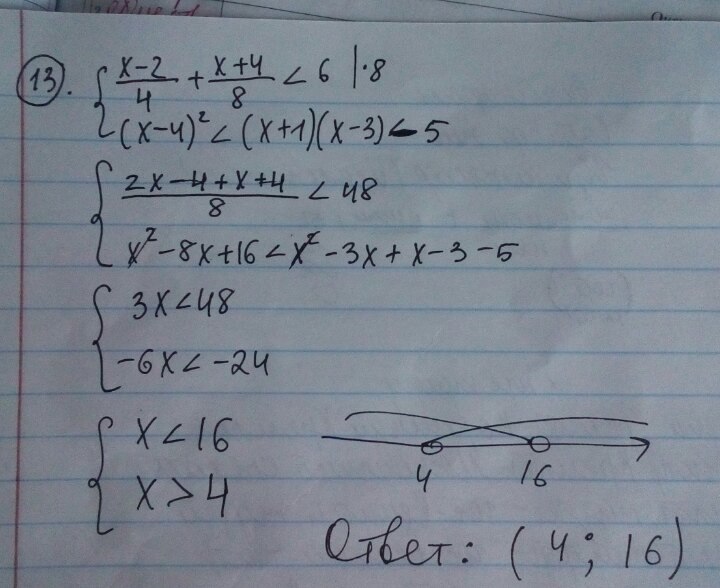 13. { (x-2)/4 + (x+4)/8 < 6 |·8
(x-4)² < (x+1)(x-3) - 5
{ (2x-4+x+4)/8 < 48
x² - 8x + 16 < x² - 3x + x - 3 - 5
{ 3x < 48
-6x < -24
{ x < 16
x > 4
4 16
Ответ: (4; 16)